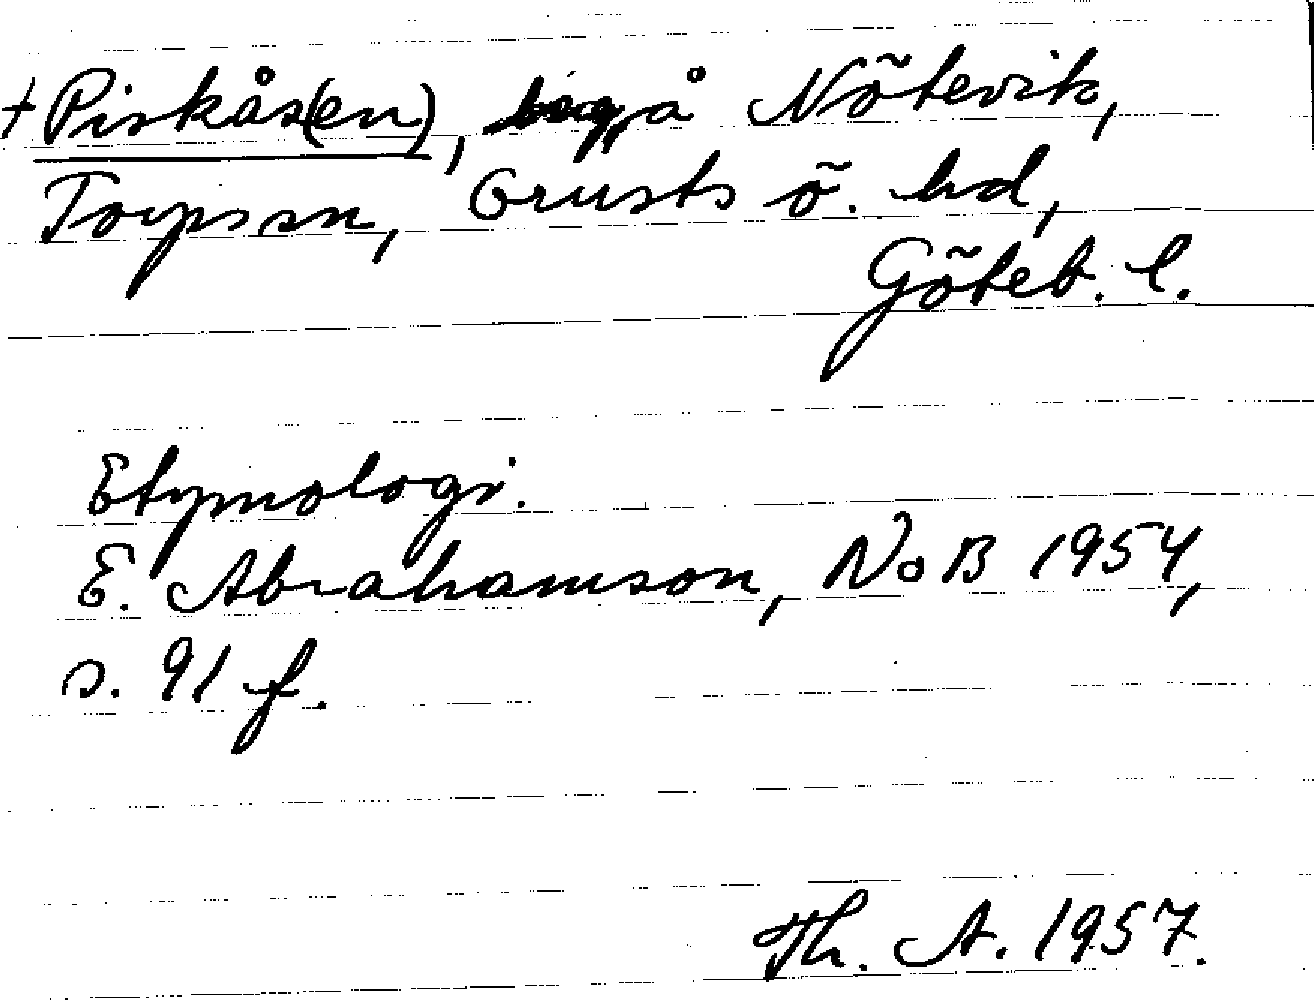 + Piskås(en), å Nötevik,
Torps sn, Orusts ö. hd,
Göteb. l.
Etymologi.
E. Abrahamson, NoB 1954,
s. 91 f.
Th. A. 1957.